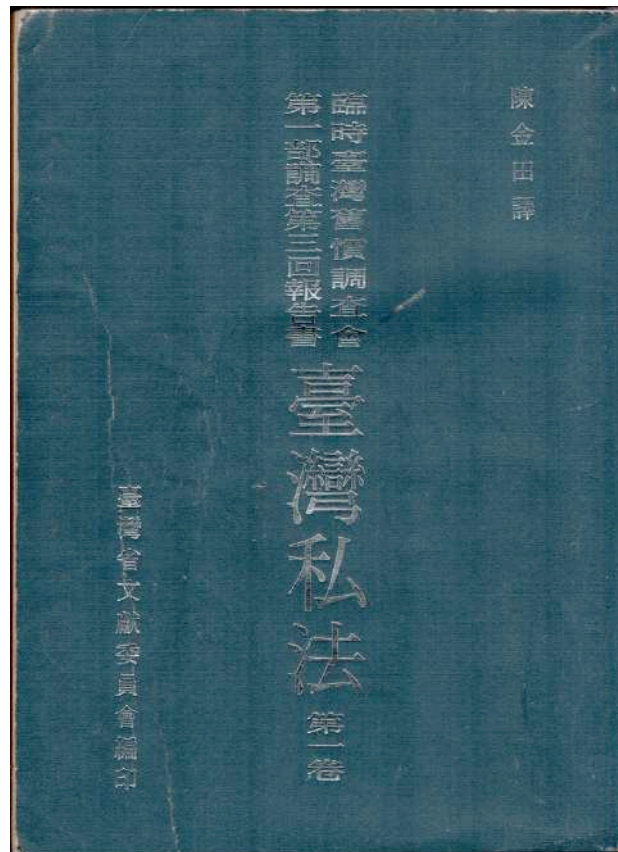 陳金田譯
臨時臺灣舊慣調查會
第一部調查第三回報告書
臺灣私法 第一卷
臺灣省文獻委員會編印